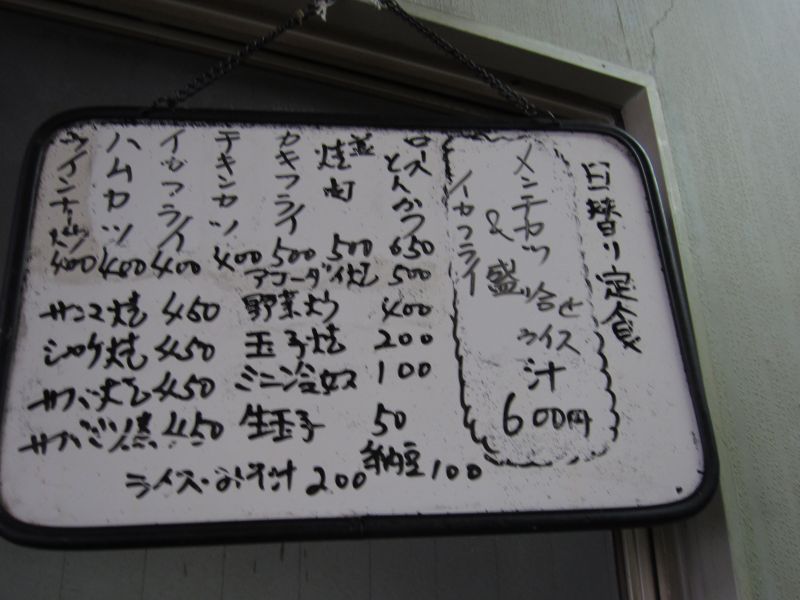 日替り定食
メンチカツ
&
イカフライ
盛合せ
ライス
汁
600円
ロースとんかつ 650
並焼肉 500
カキフライ 500
チキンカツ 400
イカフライ 400
ハムカツ 400
ウインナー 400
500
サンマ焼 450 野菜炒 400
シャケ焼 450 玉子焼 200
サバ焼 450 ミニ冷奴 100
サバミソ煮 450 生玉子 50
ライス・みそ汁 200 納豆 100